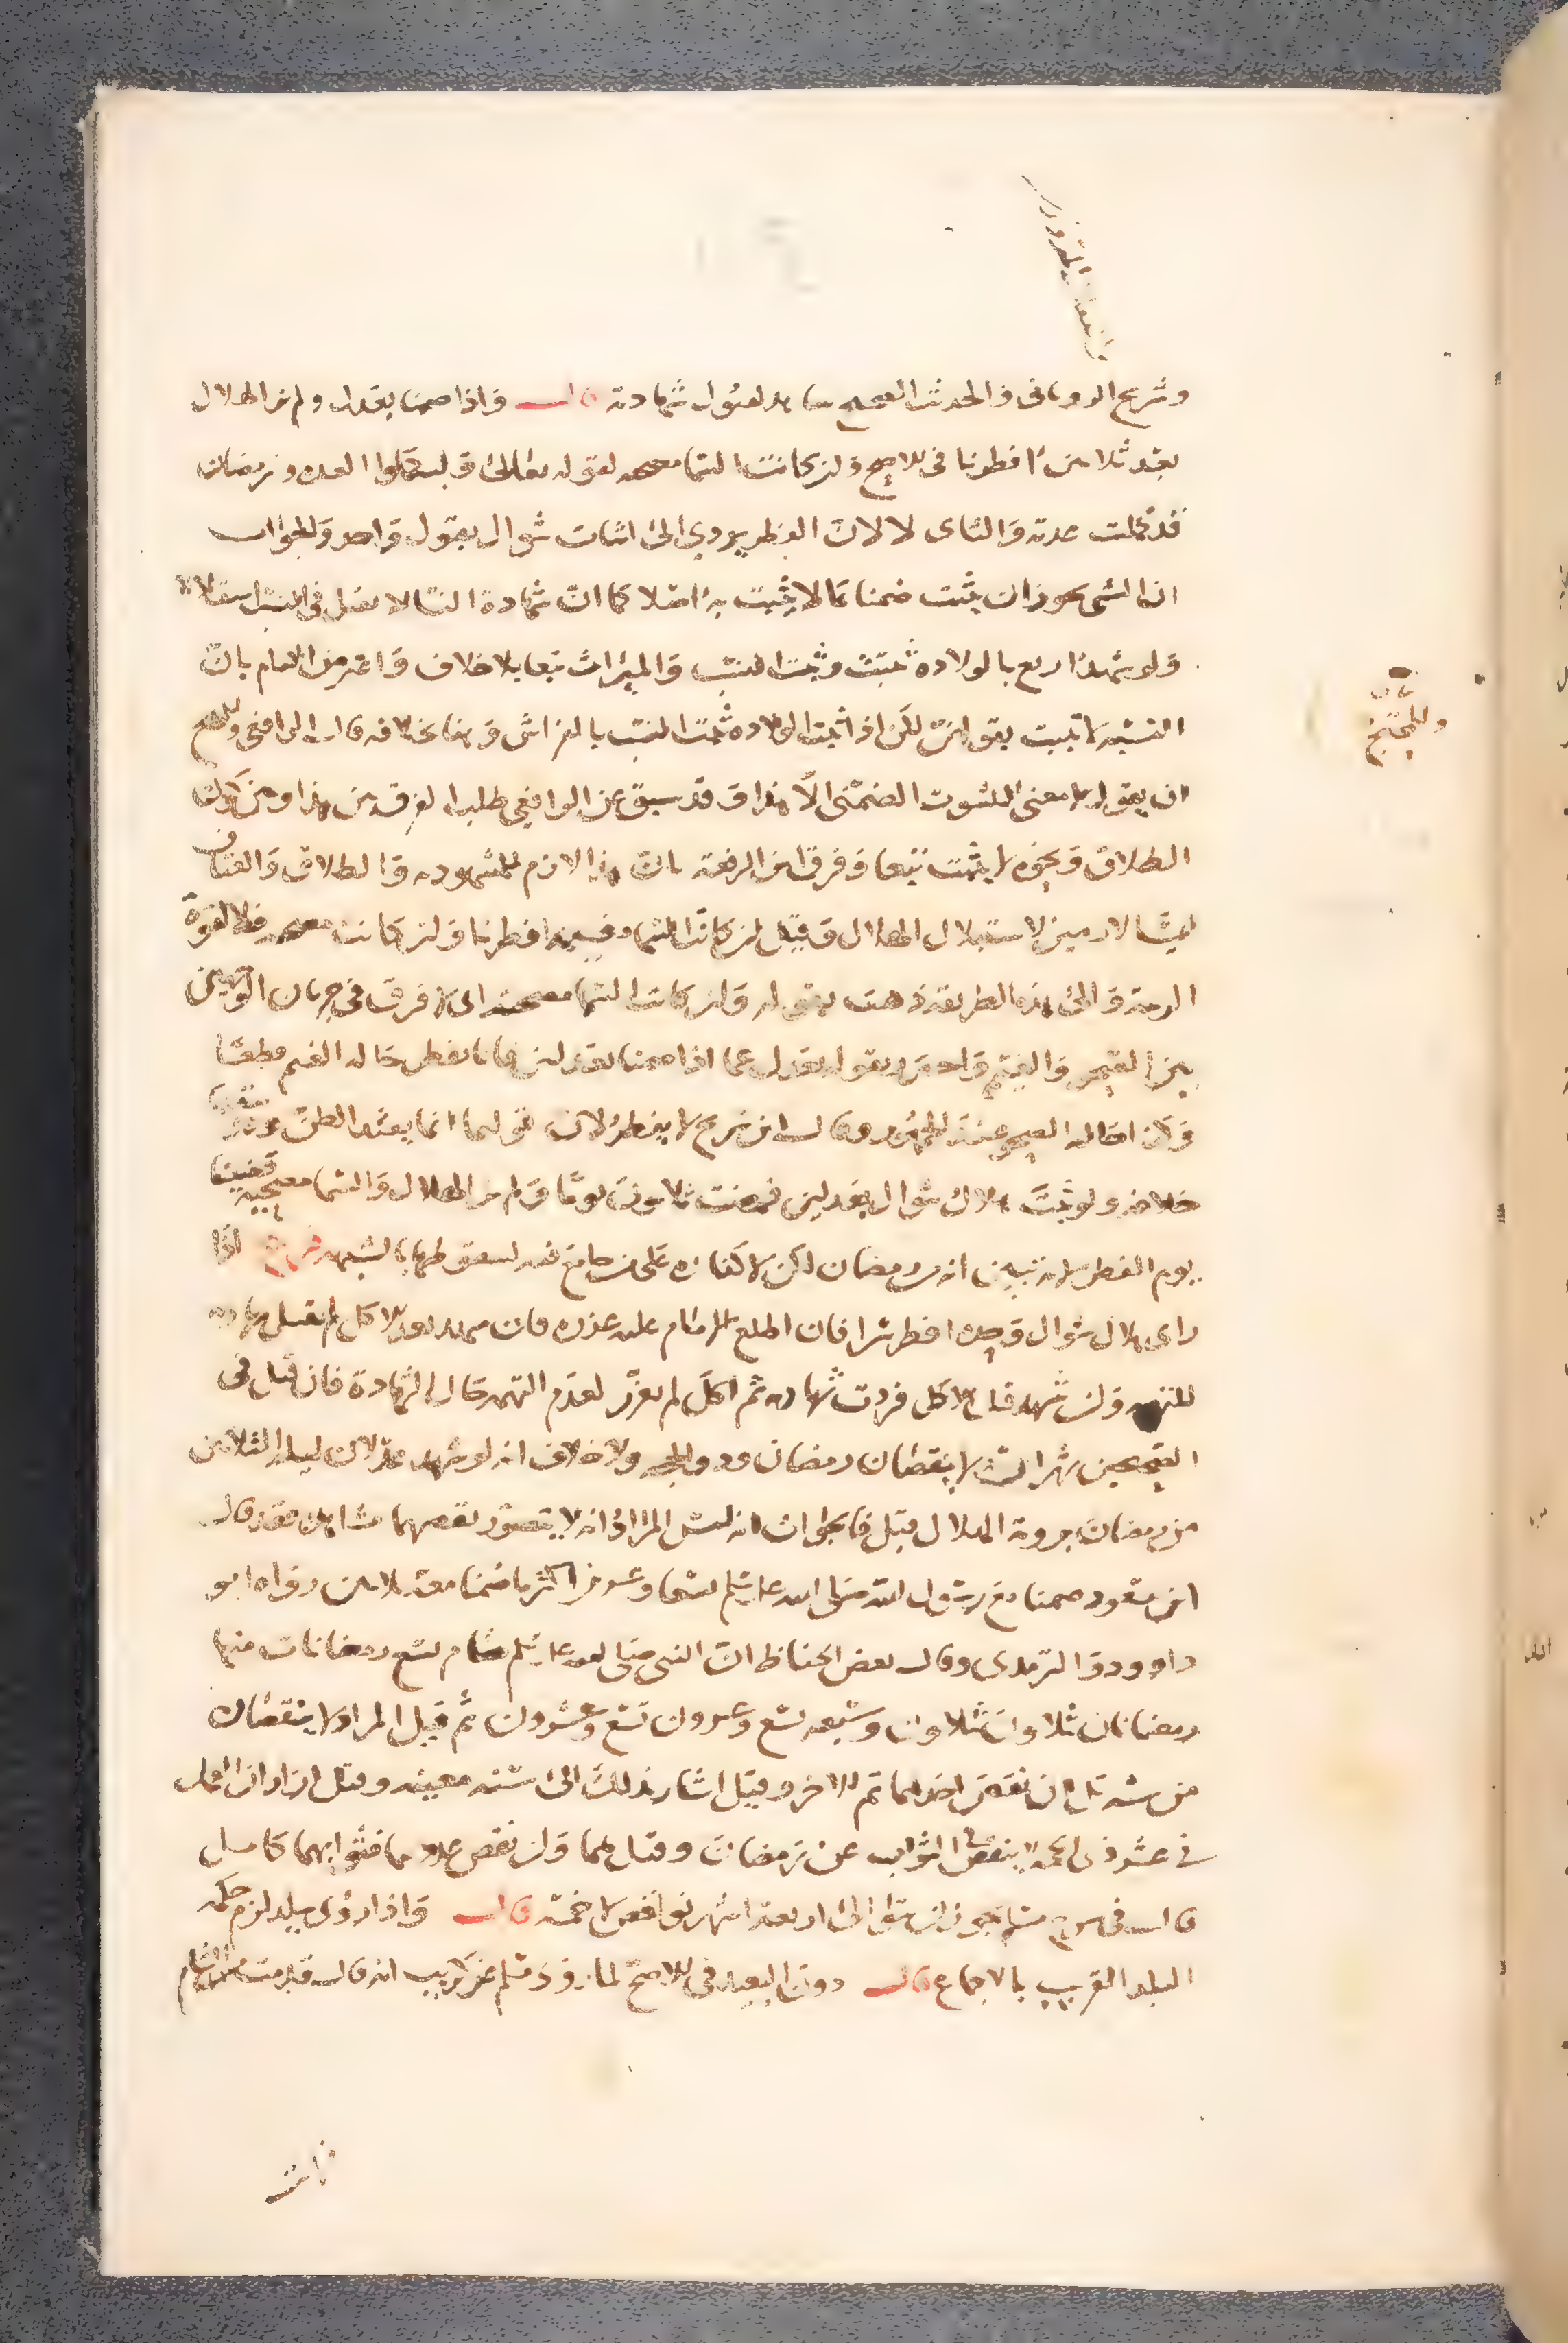 قال واذا صمنا بعدل ولم نر الهلال
بعد ثلاثين افطرنا في الاصح وان كانت السما مصحيه لقوله تعالى ولتكملوا العده ورمضان
قد كملت عدته والثاني لا لان الفطر يودي الى اثبات شوال بقول واحد والجواب
ان الشي يجوز ان يثبت ضمنا بما لا يثبت به اصلا كما ان شهادة النسا لا تقبل في النسب استقلالا
ولو شهد اربع بالولاده ثبتت وثبت النسب والميراث تبعا بلا خلاف واعترض الامام بان
النسب لا يثبت بقولهن لكن اذا ثبتت الولاده ثبت النسب بالفراش وهنا بخلافه قال الرافعي وللمحتج
ان يقول لا معنى للثبوت الضمني الا هذا وقد سبق عن الرافعي طلب الفرق بين هذا وبين كون
الطلاق ونحوه لا يثبت تبعا وفرق ابن الرفعة بان هذا لازم للمشهود به والطلاق والعتاق
ليسا لازمين لاستهلال الهلال وقيل ان كانت السما مغيمه افطرنا وان كانت مصحيه فلا لقوة
الريبة والى هذه الطريقة ذهب بقوله وان كانت السما مصحية اي لا فرق في جريان الوجهين
بين الصحو والغيم واحترز بقوله بعدل عما اذا صمنا بعدلين فانا نفطر حاله الغيم قطعا
وكذا حاله الصحو عند الجمهور وقال ابن سريج لا يفطر لان قولهما انما يفيد الظن وقد تيقنا
خلافه ولو ثبت هلال شوال بعدلين فمضت ثلاثون يوما ولم نر الهلال والسما مصحيه قضينا
يوم الفطر لانه تبين انه من رمضان لكن لا كفارة على من جامع فيه لسقوطها بالشبهه فرع اذا
راى هلال شوال وحده افطر سرا فان اطلع الامام عليه عزره فان شهد بعد الاكل لم تقبل شهادته
للتهمه وان شهد قبل الاكل فردت شهادته ثم اكل لم يعزر لعدم التهمه حال الشهادة فان قيل في
الصحيحين شهران لا ينقصان رمضان وذو الحجه ولا خلاف انه لو شهد عدلان ليلة الثلاثين
من رمضان بروية الهلال قبل فالجواب انه ليس المراد انه لا يتصور نقصهما مشاهدة فقد قال
ابن مسعود صمنا مع رسول الله صلى الله عليه وسلم تسعا وعشرين اكثر ما صمنا معه ثلاثين رواه ابو
داوود والترمذي وقال بعض الحفاظ ان النبي صلى الله عليه وسلم صام تسع رمضانات منها
رمضانان ثلاثون ثلاثون وسبعه تسع وعشرون تسع وعشرون ثم قيل المراد لا ينقصان
من سنة بل ان نقص احدهما تم الاخر وقيل اشار بذلك الى سنه معينه وقيل اراد ان العمل
في عشر ذي الحجه لا ينقص في الثواب عن رمضان وقيل هما وان نقص عددهما فثوابهما كامل
قال في شرح مسلم يجوز ان يتوالى اربعة اشهر نواقص لا خمسة قال واذا رؤى ببلد لزم حكمه
البلد القريب بالاجماع قال دون البعيد في الاصح لما روى مسلم عن كريب انه قال قدمت من الشام